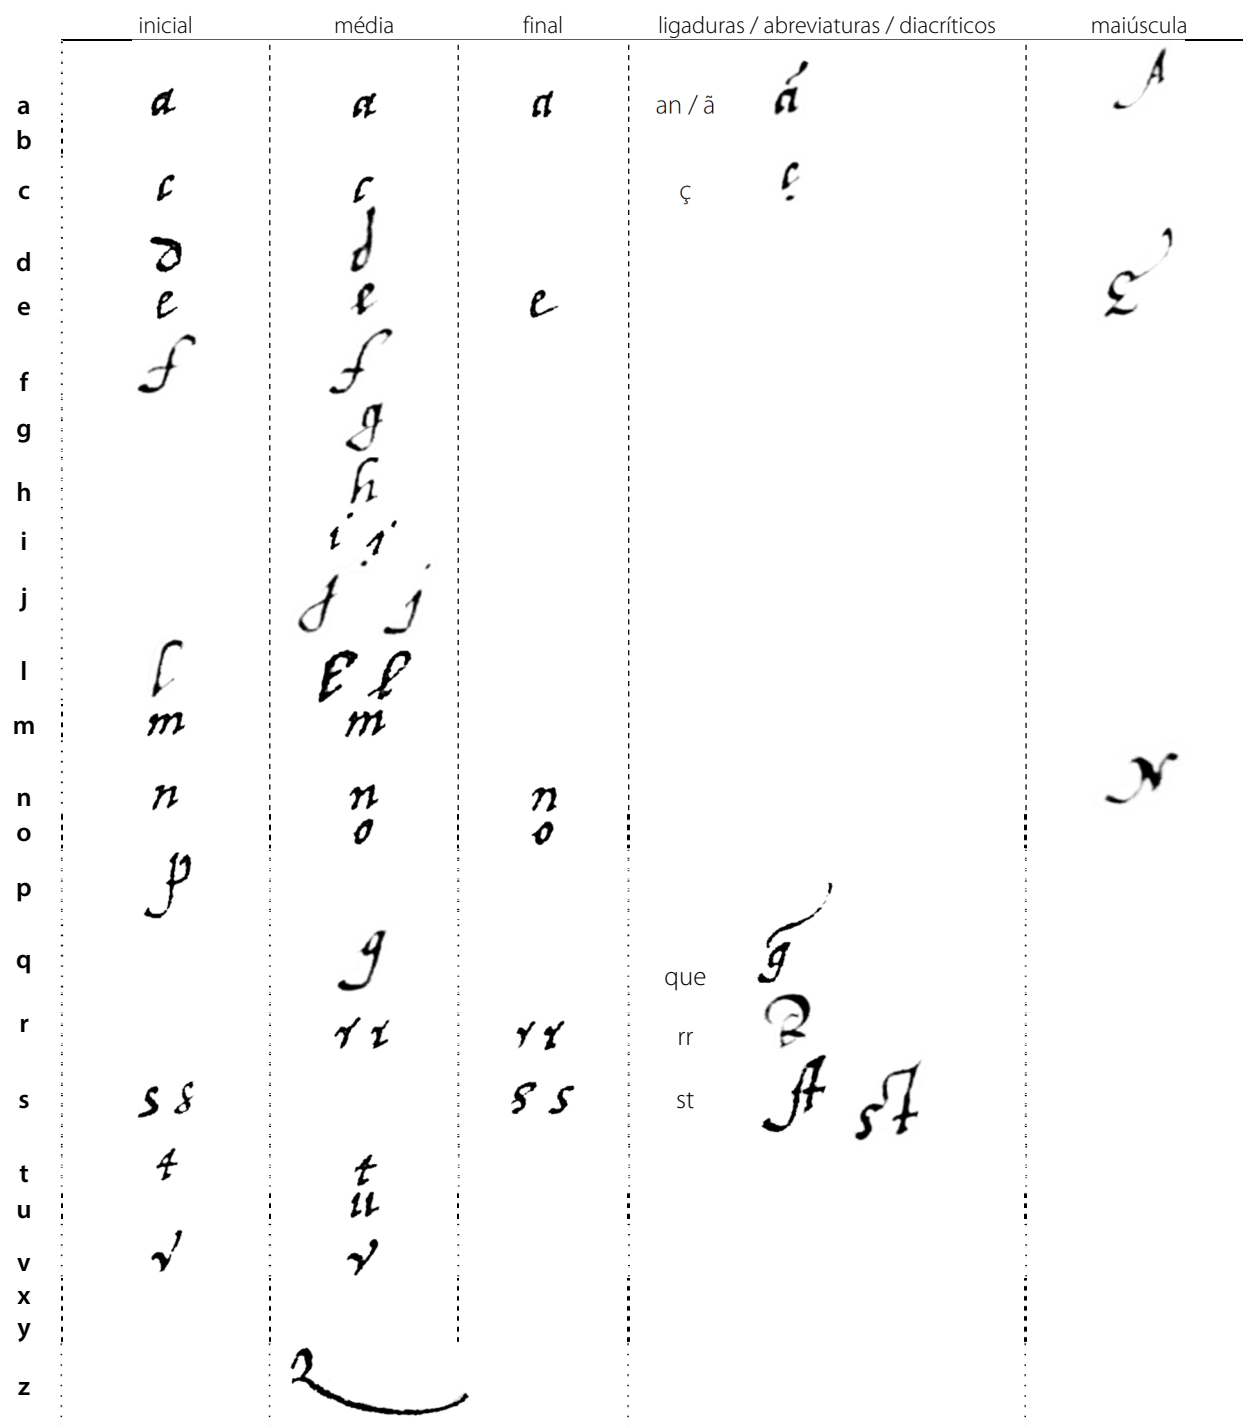 inicial média final ligaduras / abreviaturas / diacríticos maiúscula
a a a a an / ã á A
b
c c c ç ç
d d d
e e e e E
f f f
g g
h h
i i i
j j j
l l l l
m m m
n n n n N
o o o
p p
q q que q̃
r r r r r rr R
s s s s s st st st
t t t
u u
v v v
x
y
z z